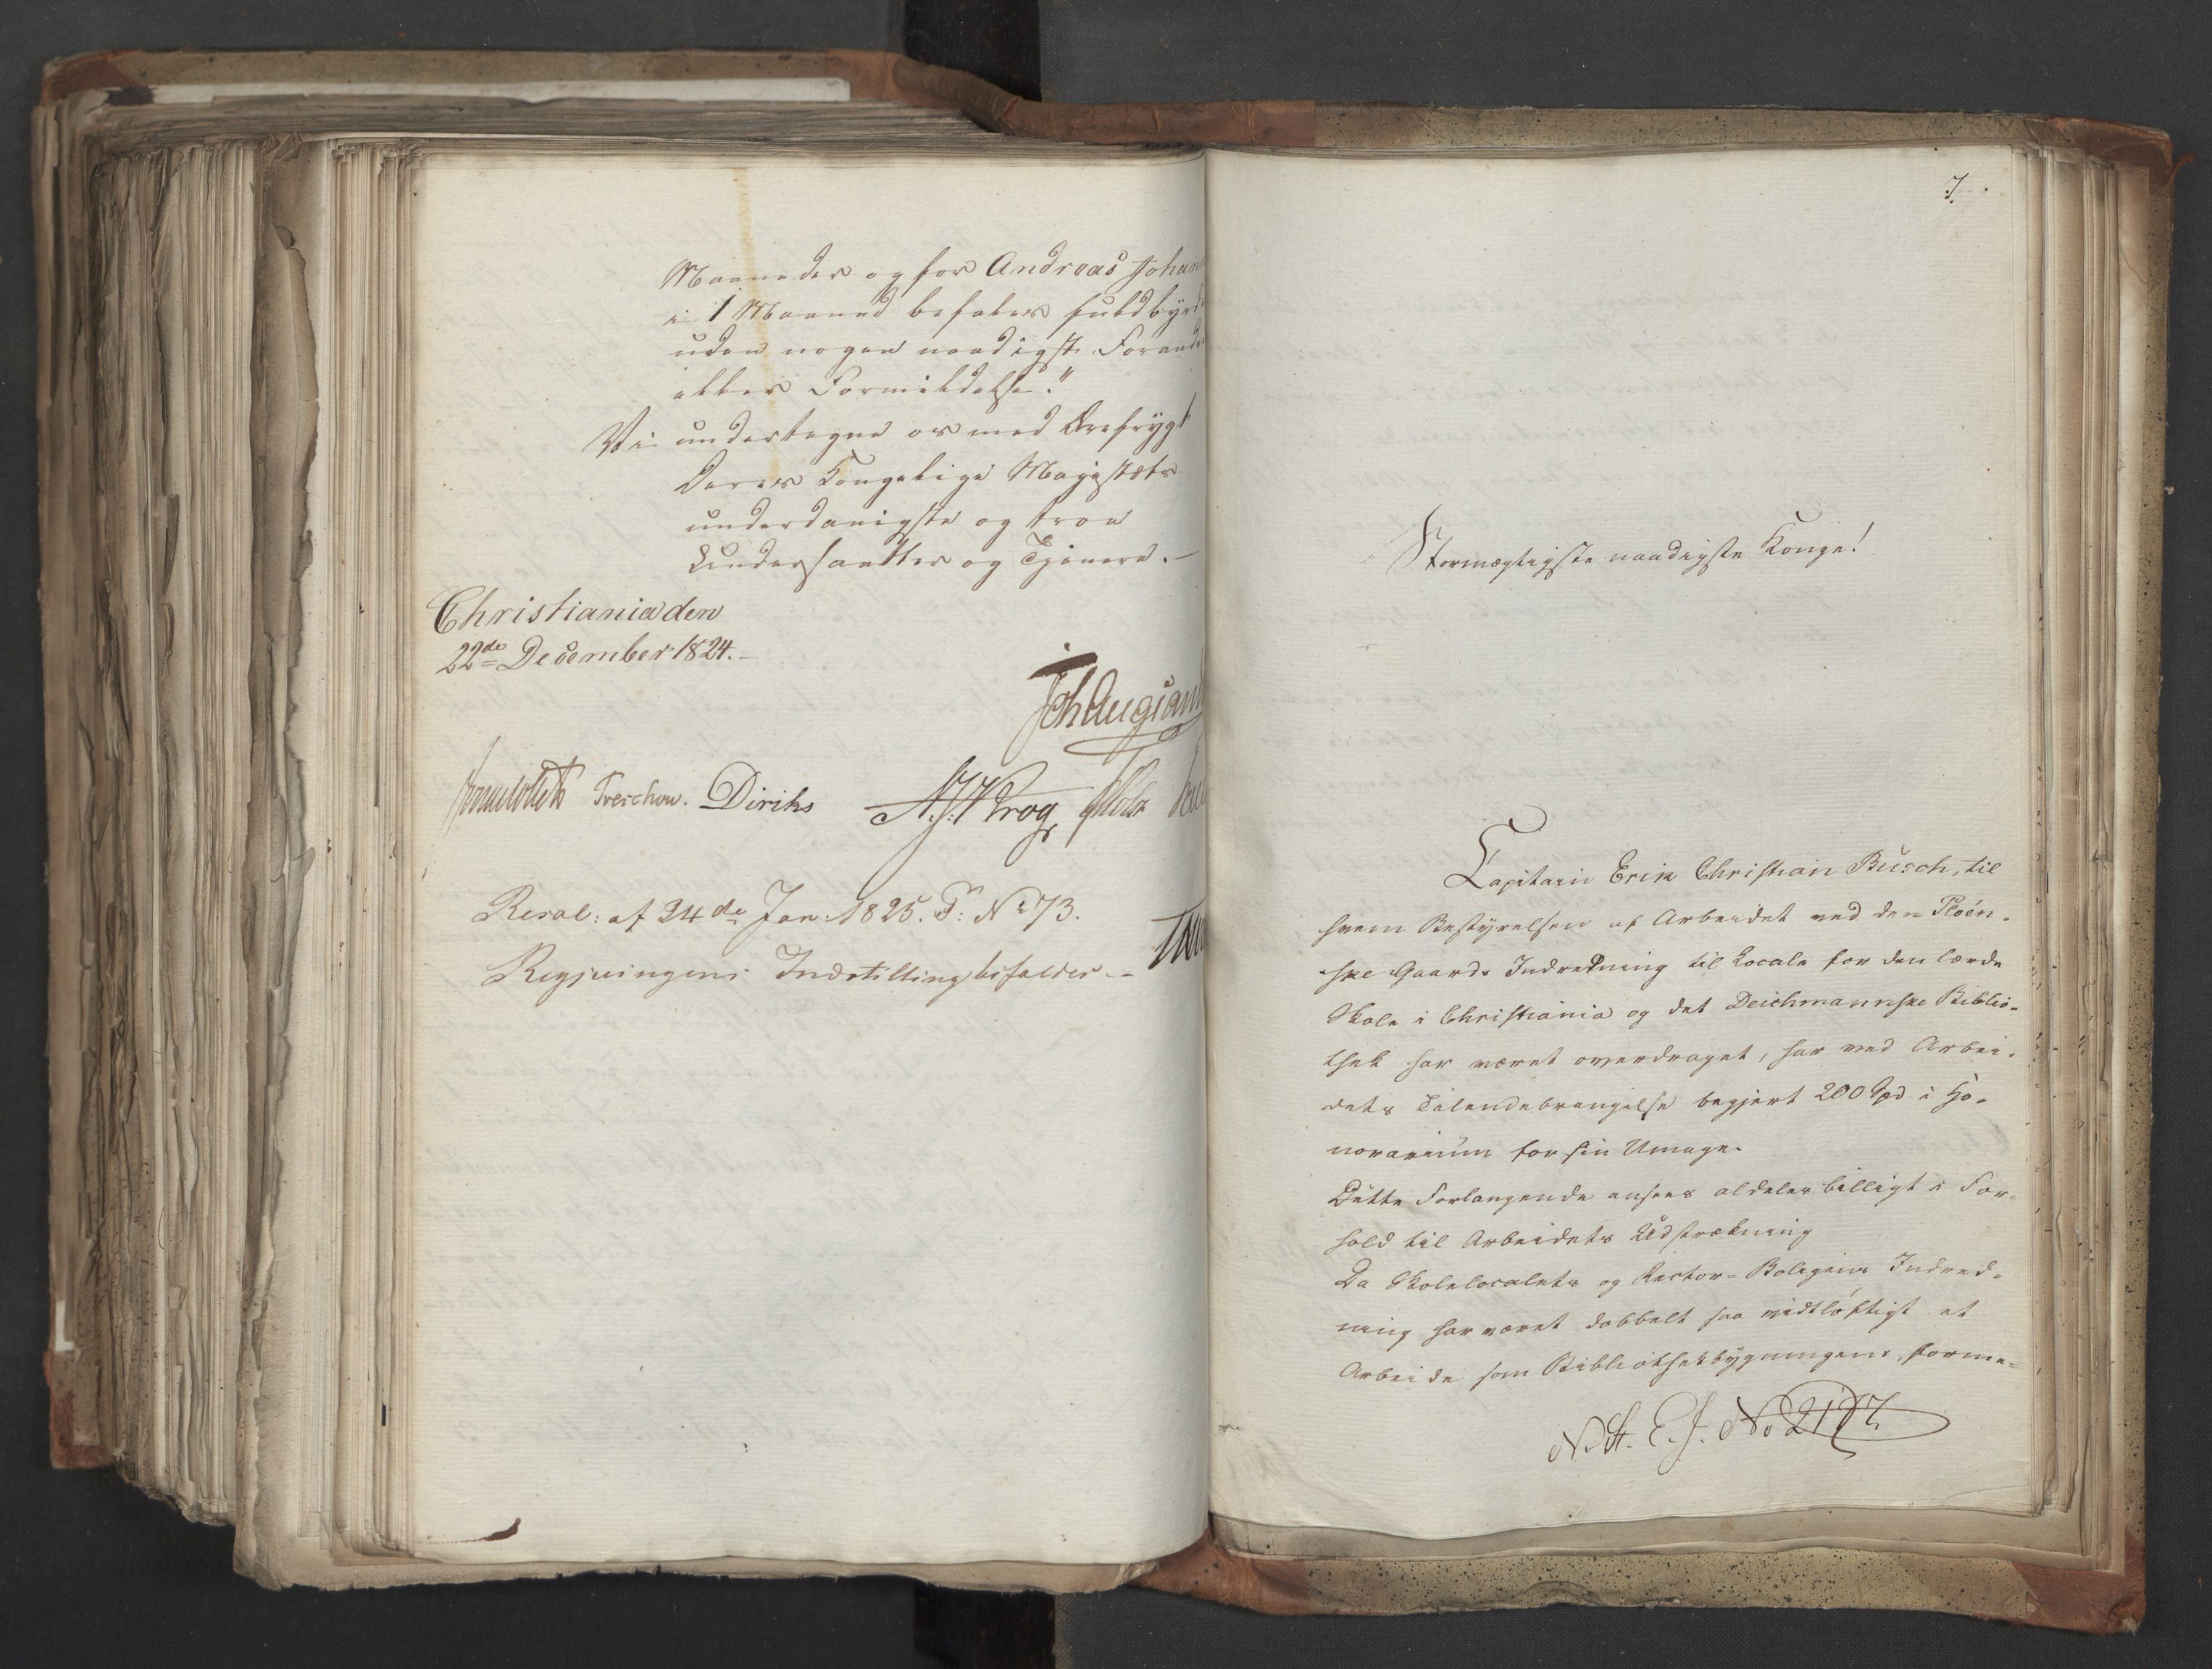 Maaneder og for Andreas Johan
i 1 Maaned befales fuldbyrd
uden nogen naadigst Forand
eller Formildelse."
Vi undertegne os med Ærefrygt
Deres Kongelige Majestæts
underdanigste og troe
Undersaatter og Tjenere.—
Christiania den
22de December 1824.—
Joh Aug Sand
Treschow. Diriks N. J. Krog Holst
Resol: af 24de Jan: 1825. P: No 73.
Regjeringens Indstilling bifaldes.—
7.
Stormægtigste naadigste Konge!
Capitain Erik Christian Busch, til
hvem Bestyrelsen af Arbeidet ved den Ploén-
ske Gaards Indretning til Locale for den lærde
Skole i Christiania og det Deichmannske Biblio-
thek har været overdraget, har ved Arbei-
dets Tilendebringelse begjert 200 Spd i Ho-
norarium for sin Umage.
Dette Forlangende ansees aldeles billigt i For-
hold til Arbeidets Udstrækning
Da Skolelocalets og Rector-Boligens Indred-
ning har været dobbelt saa vidtløftigt et
Arbeide som Bibliothekbygningens, forme-
N. St. E. J. No 2187